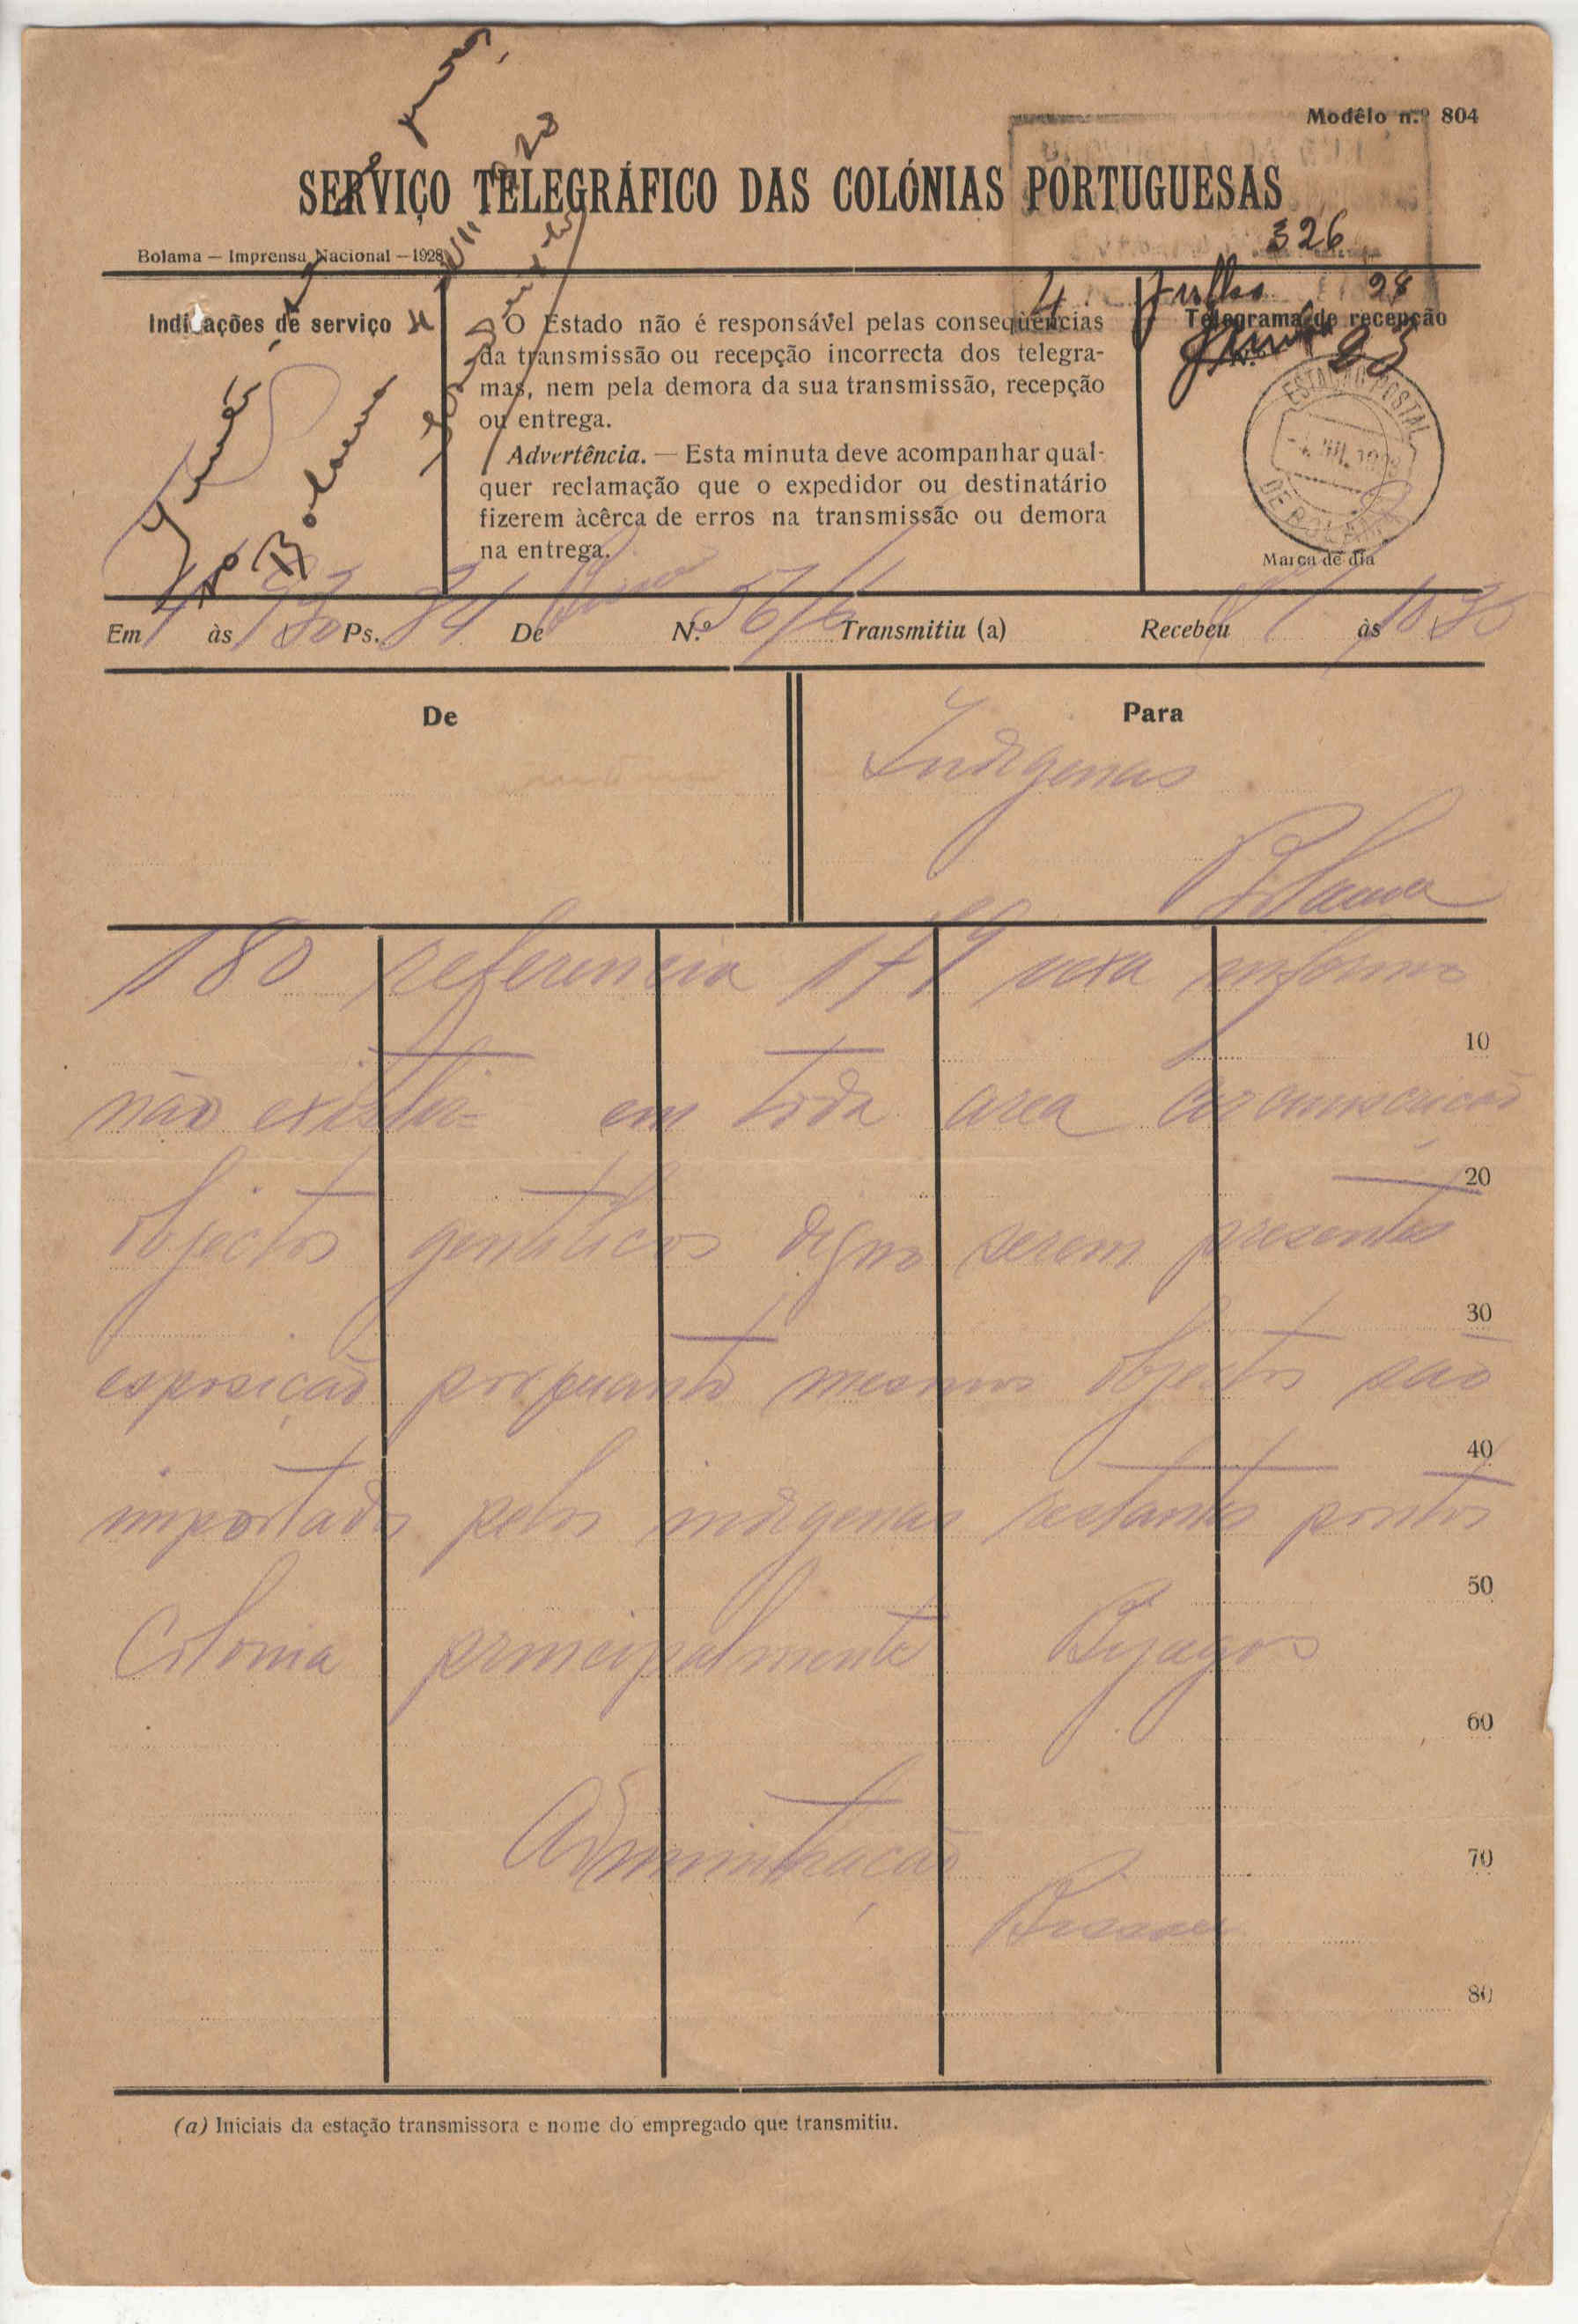 Modêlo n.º 804
SERVIÇO TELEGRÁFICO DAS COLÓNIAS PORTUGUESAS
326
Bolama — Imprensa Nacional — 1928
4 Julho 28
Indicações de serviço
O Estado não é responsável pelas conseqüências
da transmissão ou recepção incorrecta dos telegra-
mas, nem pela demora da sua transmissão, recepção
ou entrega.
Advertência. — Esta minuta deve acompanhar qual-
quer reclamação que o expedidor ou destinatário
fizerem àcêrca de erros na transmissão ou demora
na entrega.
Telegrama de recepção
ESTAÇÃO POSTAL
DE BOLAMA
Marca de dia
Bolama
Em às Ps. 34 De N.º 56/6 Transmitiu (a) Recebeu às
De
Para
Indigenas
Bolama
180 referencia 179 vexa informo
10
não existir em toda area circunscrição
20
objectos gentilicos digno serem presentes
30
exposição porquanto mesmos objectos são
40
importados pelos indigenas restantes pontos
50
Colonia principalmente Bijagos
60
Administração
70
Bissau
80
(a) Iniciais da estação transmissora e nome do empregado que transmitiu.